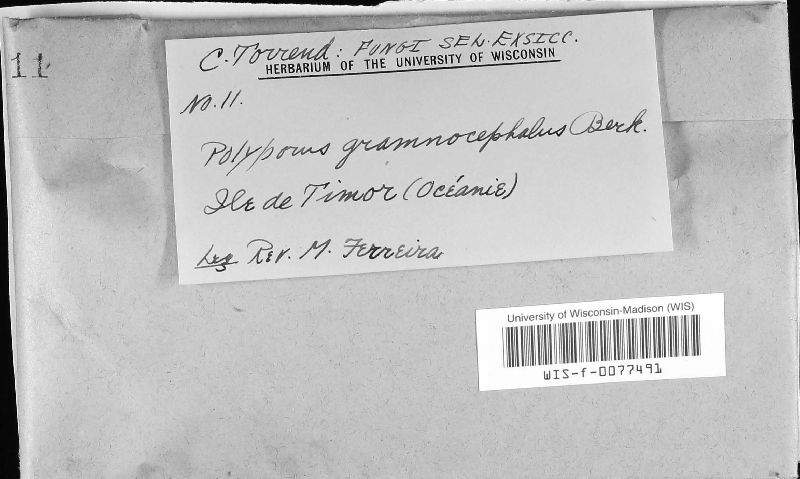 11
C. Torrend: FUNGI SEL. EXSICC.
HERBARIUM OF THE UNIVERSITY OF WISCONSIN
No. 11.
Polyporus grammocephalus Berk.
Ile de Timor (Océanie)
Leg Rev. M. Ferreira
University of Wisconsin-Madison (WIS)
WIS-f-0077491